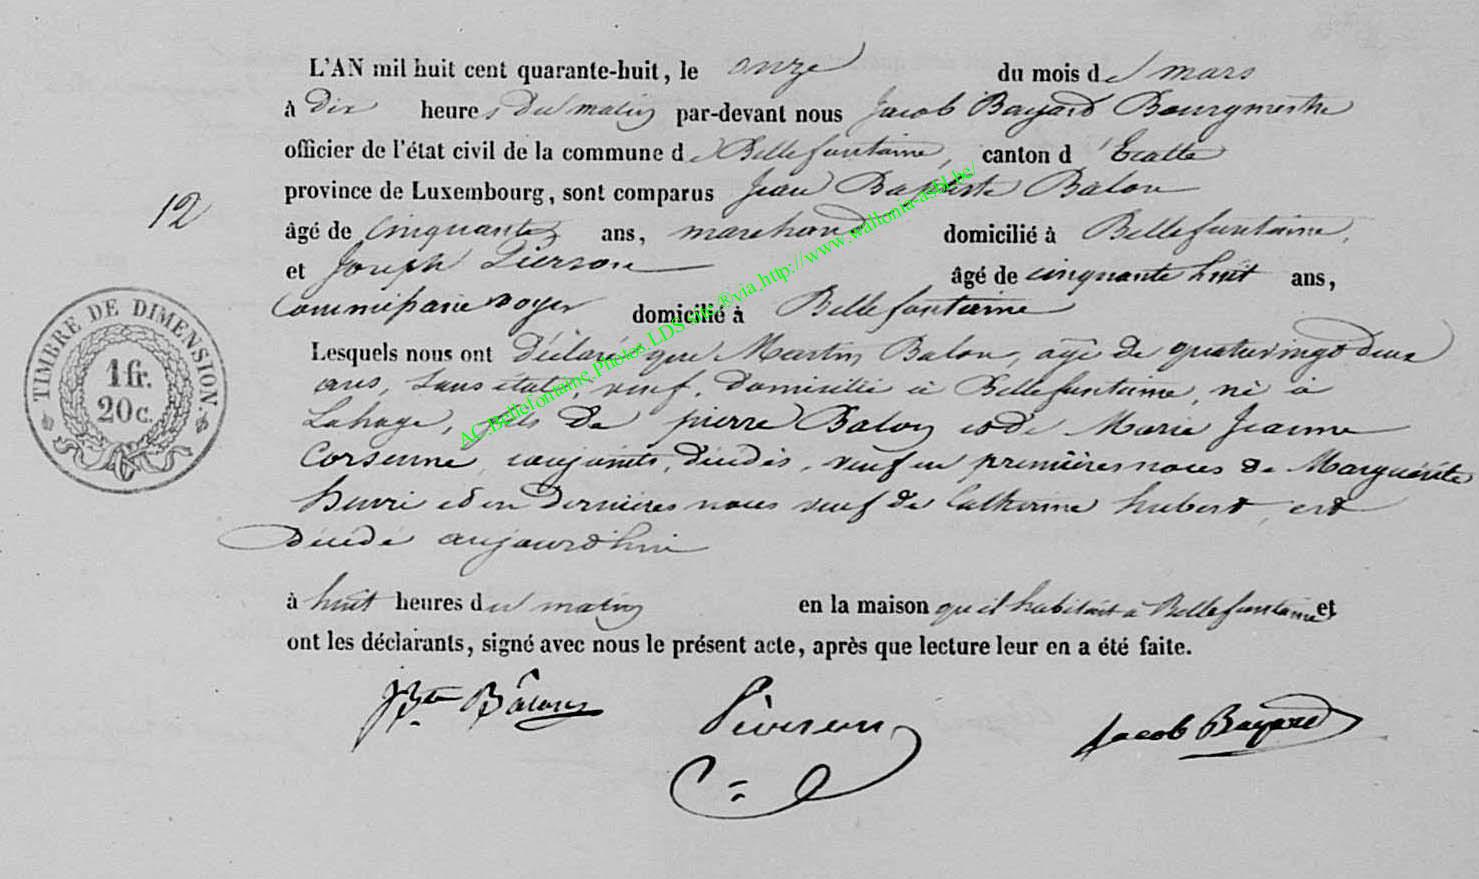 L'AN mil huit cent quarante-huit, le onze du mois de mars
à dix heures du matin par-devant nous Jacob Bayard Bourgmestre
officier de l'état civil de la commune de Bellefontaine, canton d'Etalle
province de Luxembourg, sont comparus Jean Baptiste Balon
12
âgé de cinquante ans, marchand domicilié à Bellefontaine,
et Joseph Pierson âgé de cinquante huit ans,
Commissaire voyer domicilié à Bellefontaine
Lesquels nous ont déclaré que Martin Balon, agé de quatrevingt deux
ans, sans état, veuf, domicilié à Bellefontaine, né à
Lahage, fils de pierre Balon et de Marie Jeanne
Corsenne, conjoints, décédés, veuf en premières noces de Marguérite
henri et en dernières noces veuf de Catherine hubert, est
décédé aujourd'hui
à huit heures du matin en la maison qu'il habitait à Bellefontaine et
ont les déclarants, signé avec nous le présent acte, après que lecture leur en a été faite.
JBte Bâlon Pierson Jacob Bayard
TIMBRE DE DIMENSION.
1 fr.
20 c.
AC.Bellefontaine.Photos.LDS.site.®via.http://www.wallonia-asbl.be/